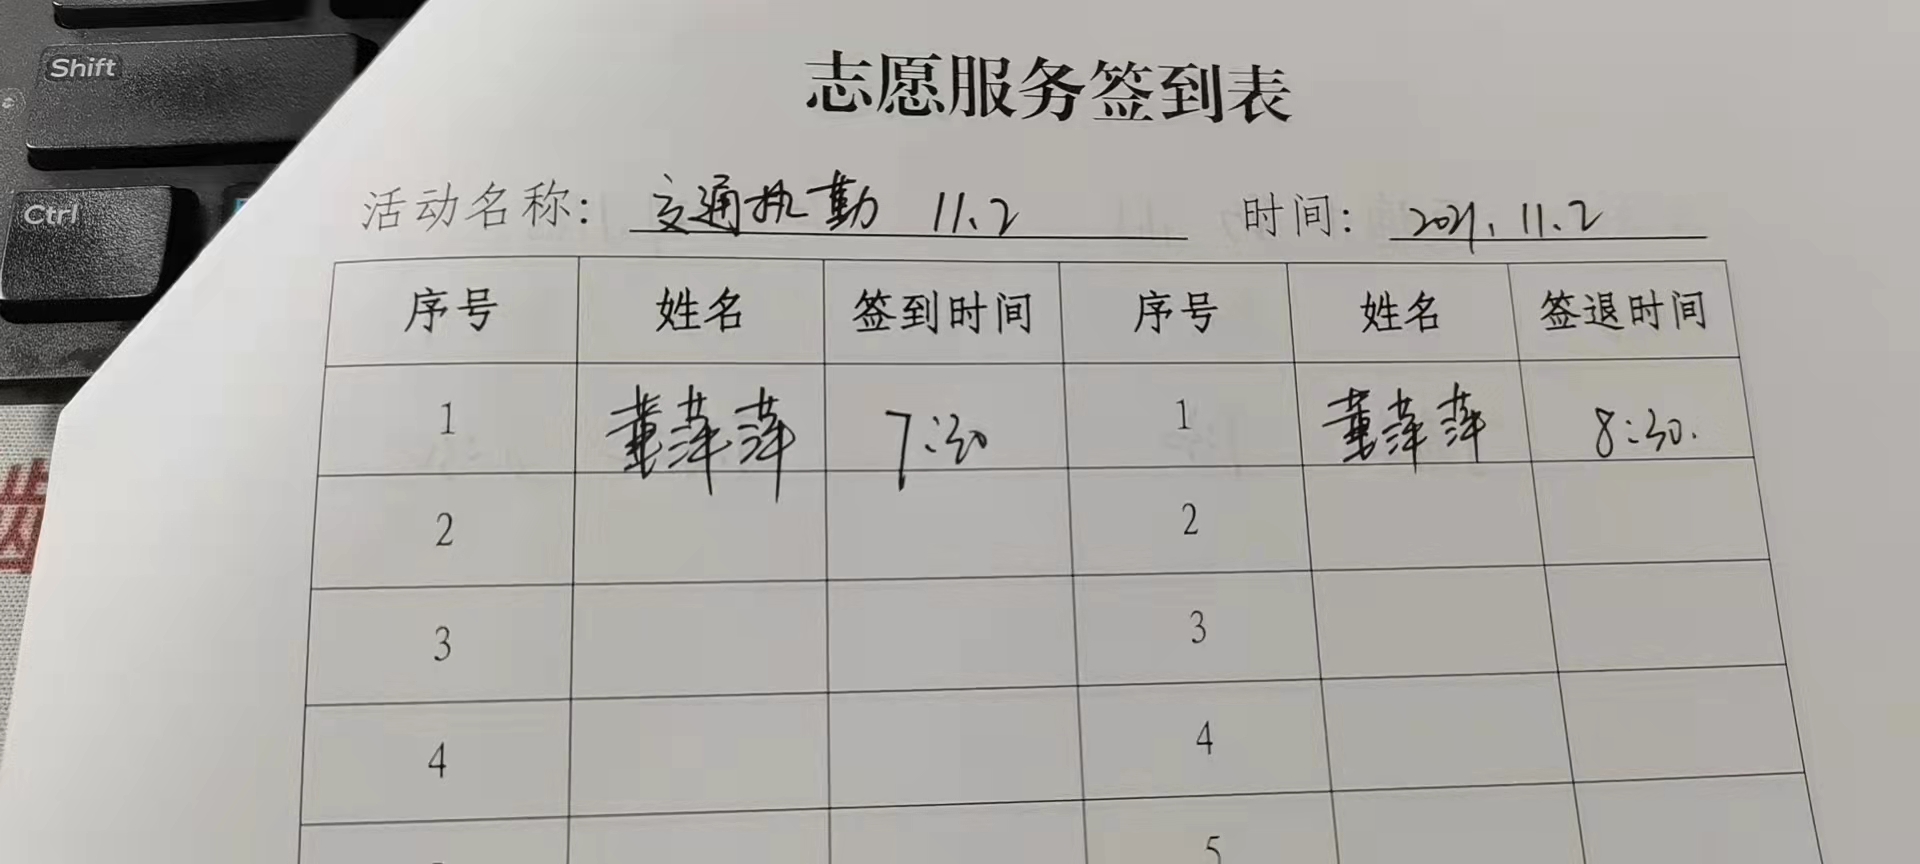 Shift
Ctrl
志愿服务签到表
活动名称: 交通执勤 11.2 时间: 2021.11.2
序号 姓名 签到时间 序号 姓名 签退时间
1 董萍萍 7:30 1 董萍萍 8:30.
2 2
3 3
4 4
5